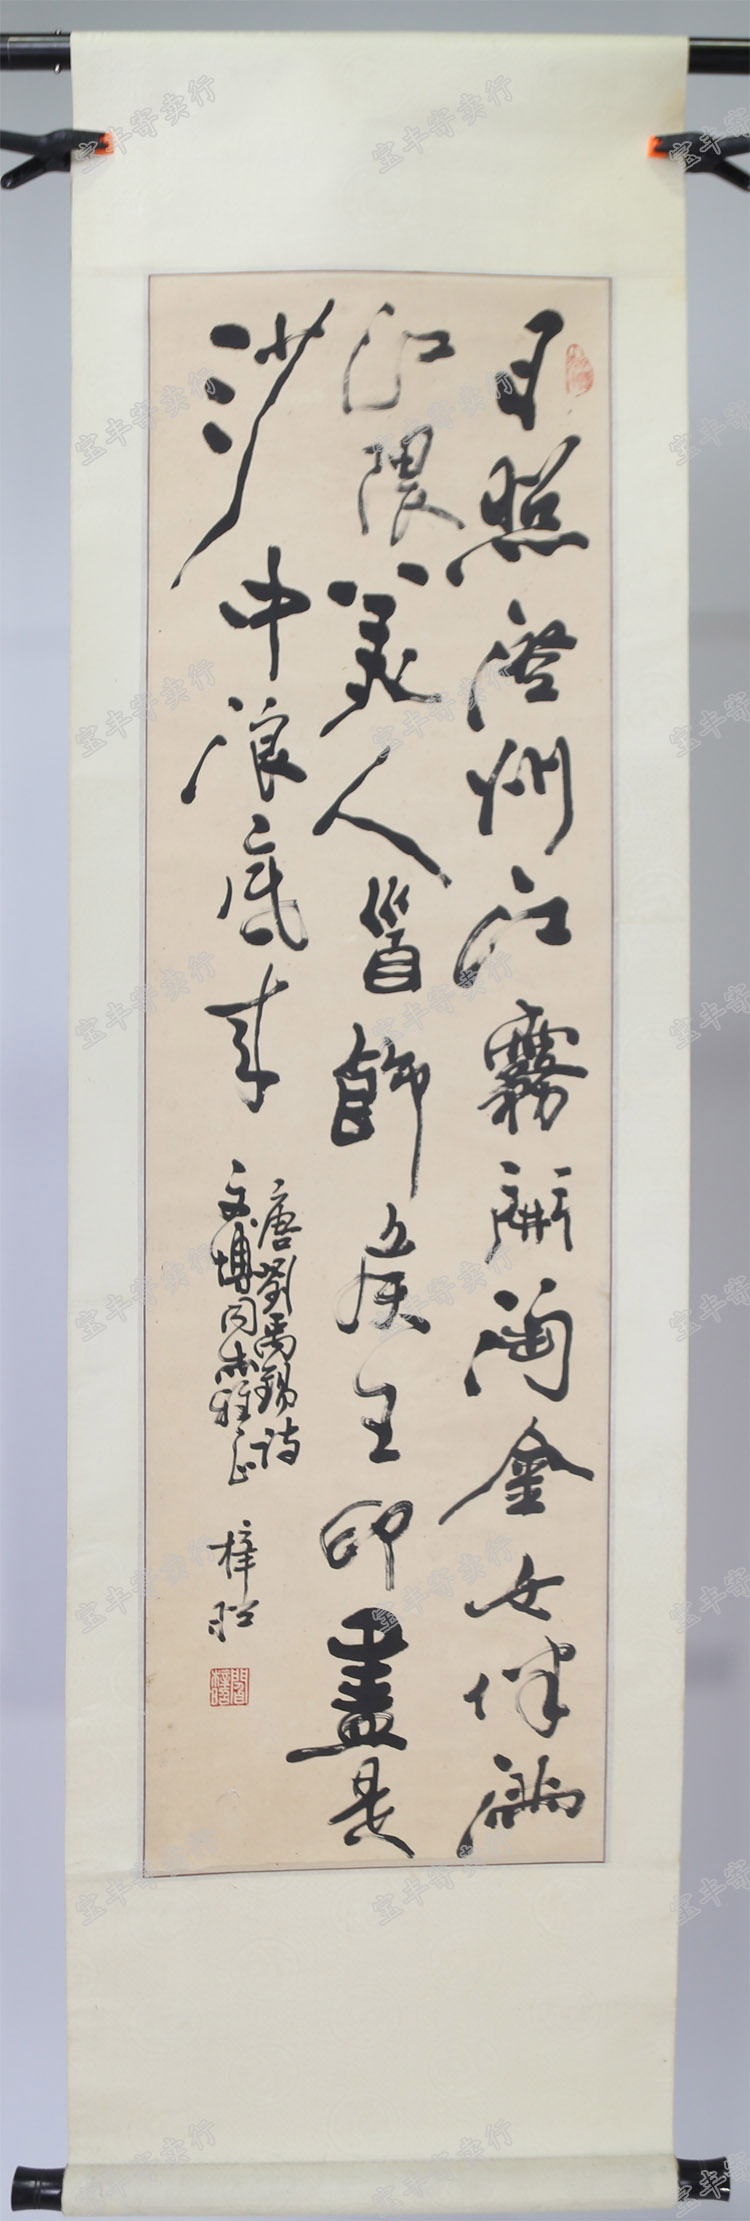 日照澄州江霧開淘金女伴滿
江隈美人首飾侯王印盡是
沙中浪底来
唐劉禹錫詩
文博同志雅正
梓昭
宝丰寄卖行